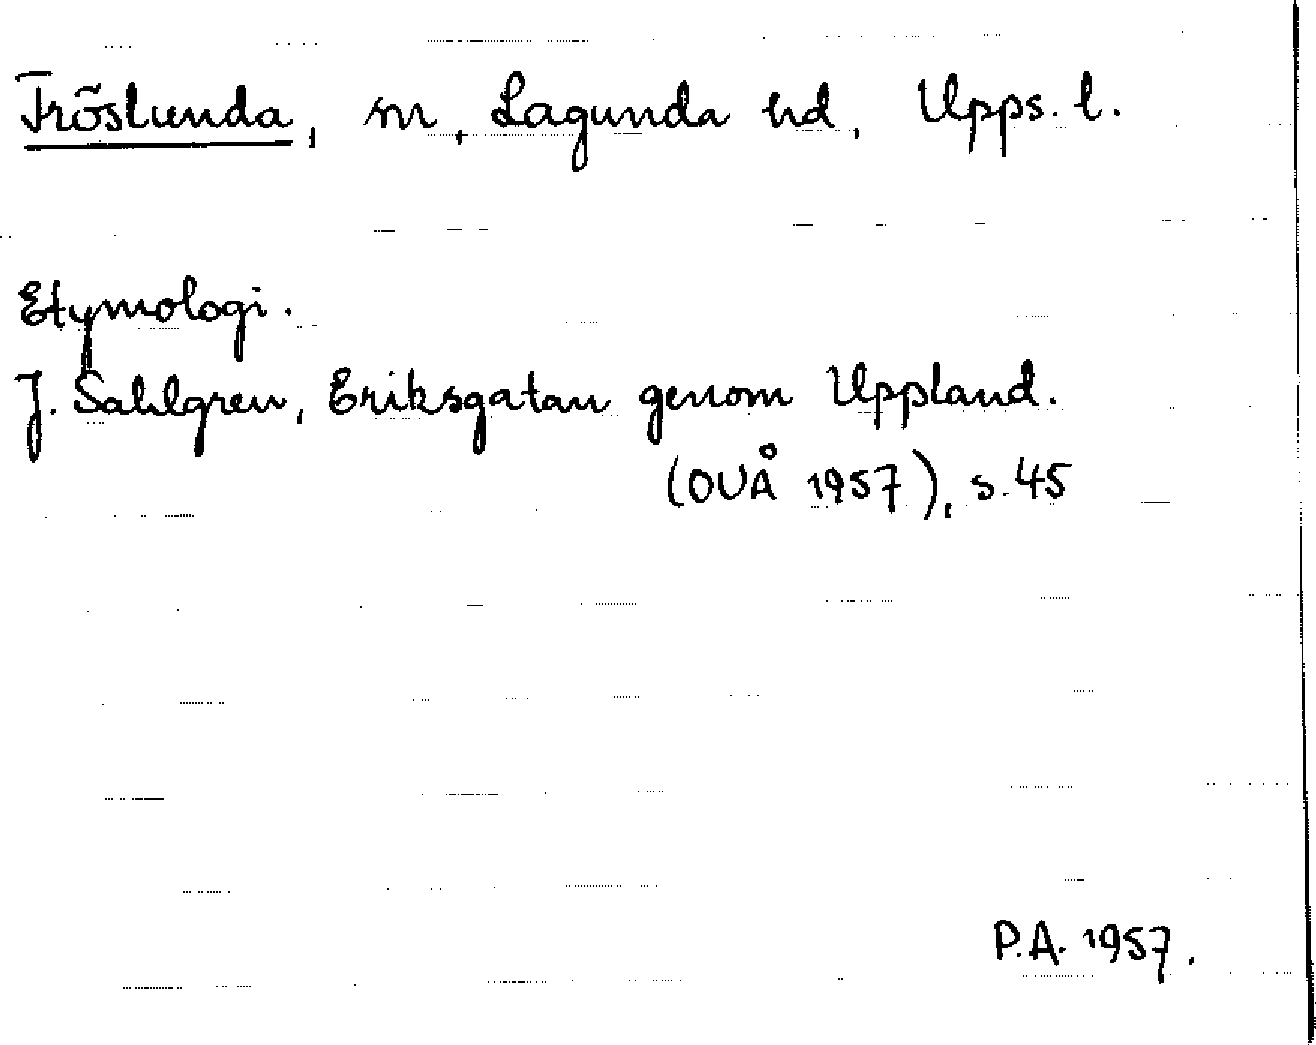 Fröslunda, sn, Lagunda hd, Upps. l.
Etymologi.
J. Sahlgren, Eriksgatan genom Uppland.
(OUÅ 1957), s. 45
P.A. 1957.